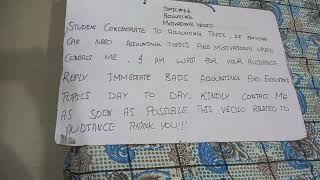 TOPIC#66
ACCOUNTING
MOTIVATIONAL VEDIO
STUDENT CONCENTRATE TO ACCOUNTING TOPIC, IF ANYONE
CAN NEED ACCOUNTING TOPICS AND MOTIVATIONAL VEDIO
CONTACT ME. I AM WAIT FOR YOUR AUDIANCE
REPLY IMMEDIATE BASIS ACCOUNTING AND ECONOMICS
TOPICS DAY TO DAY. KINDLY CONTACT ME
AS SOON AS POSSIBLE THIS VEDIO RELATED TO
AUDIANCE THANK YOU!!